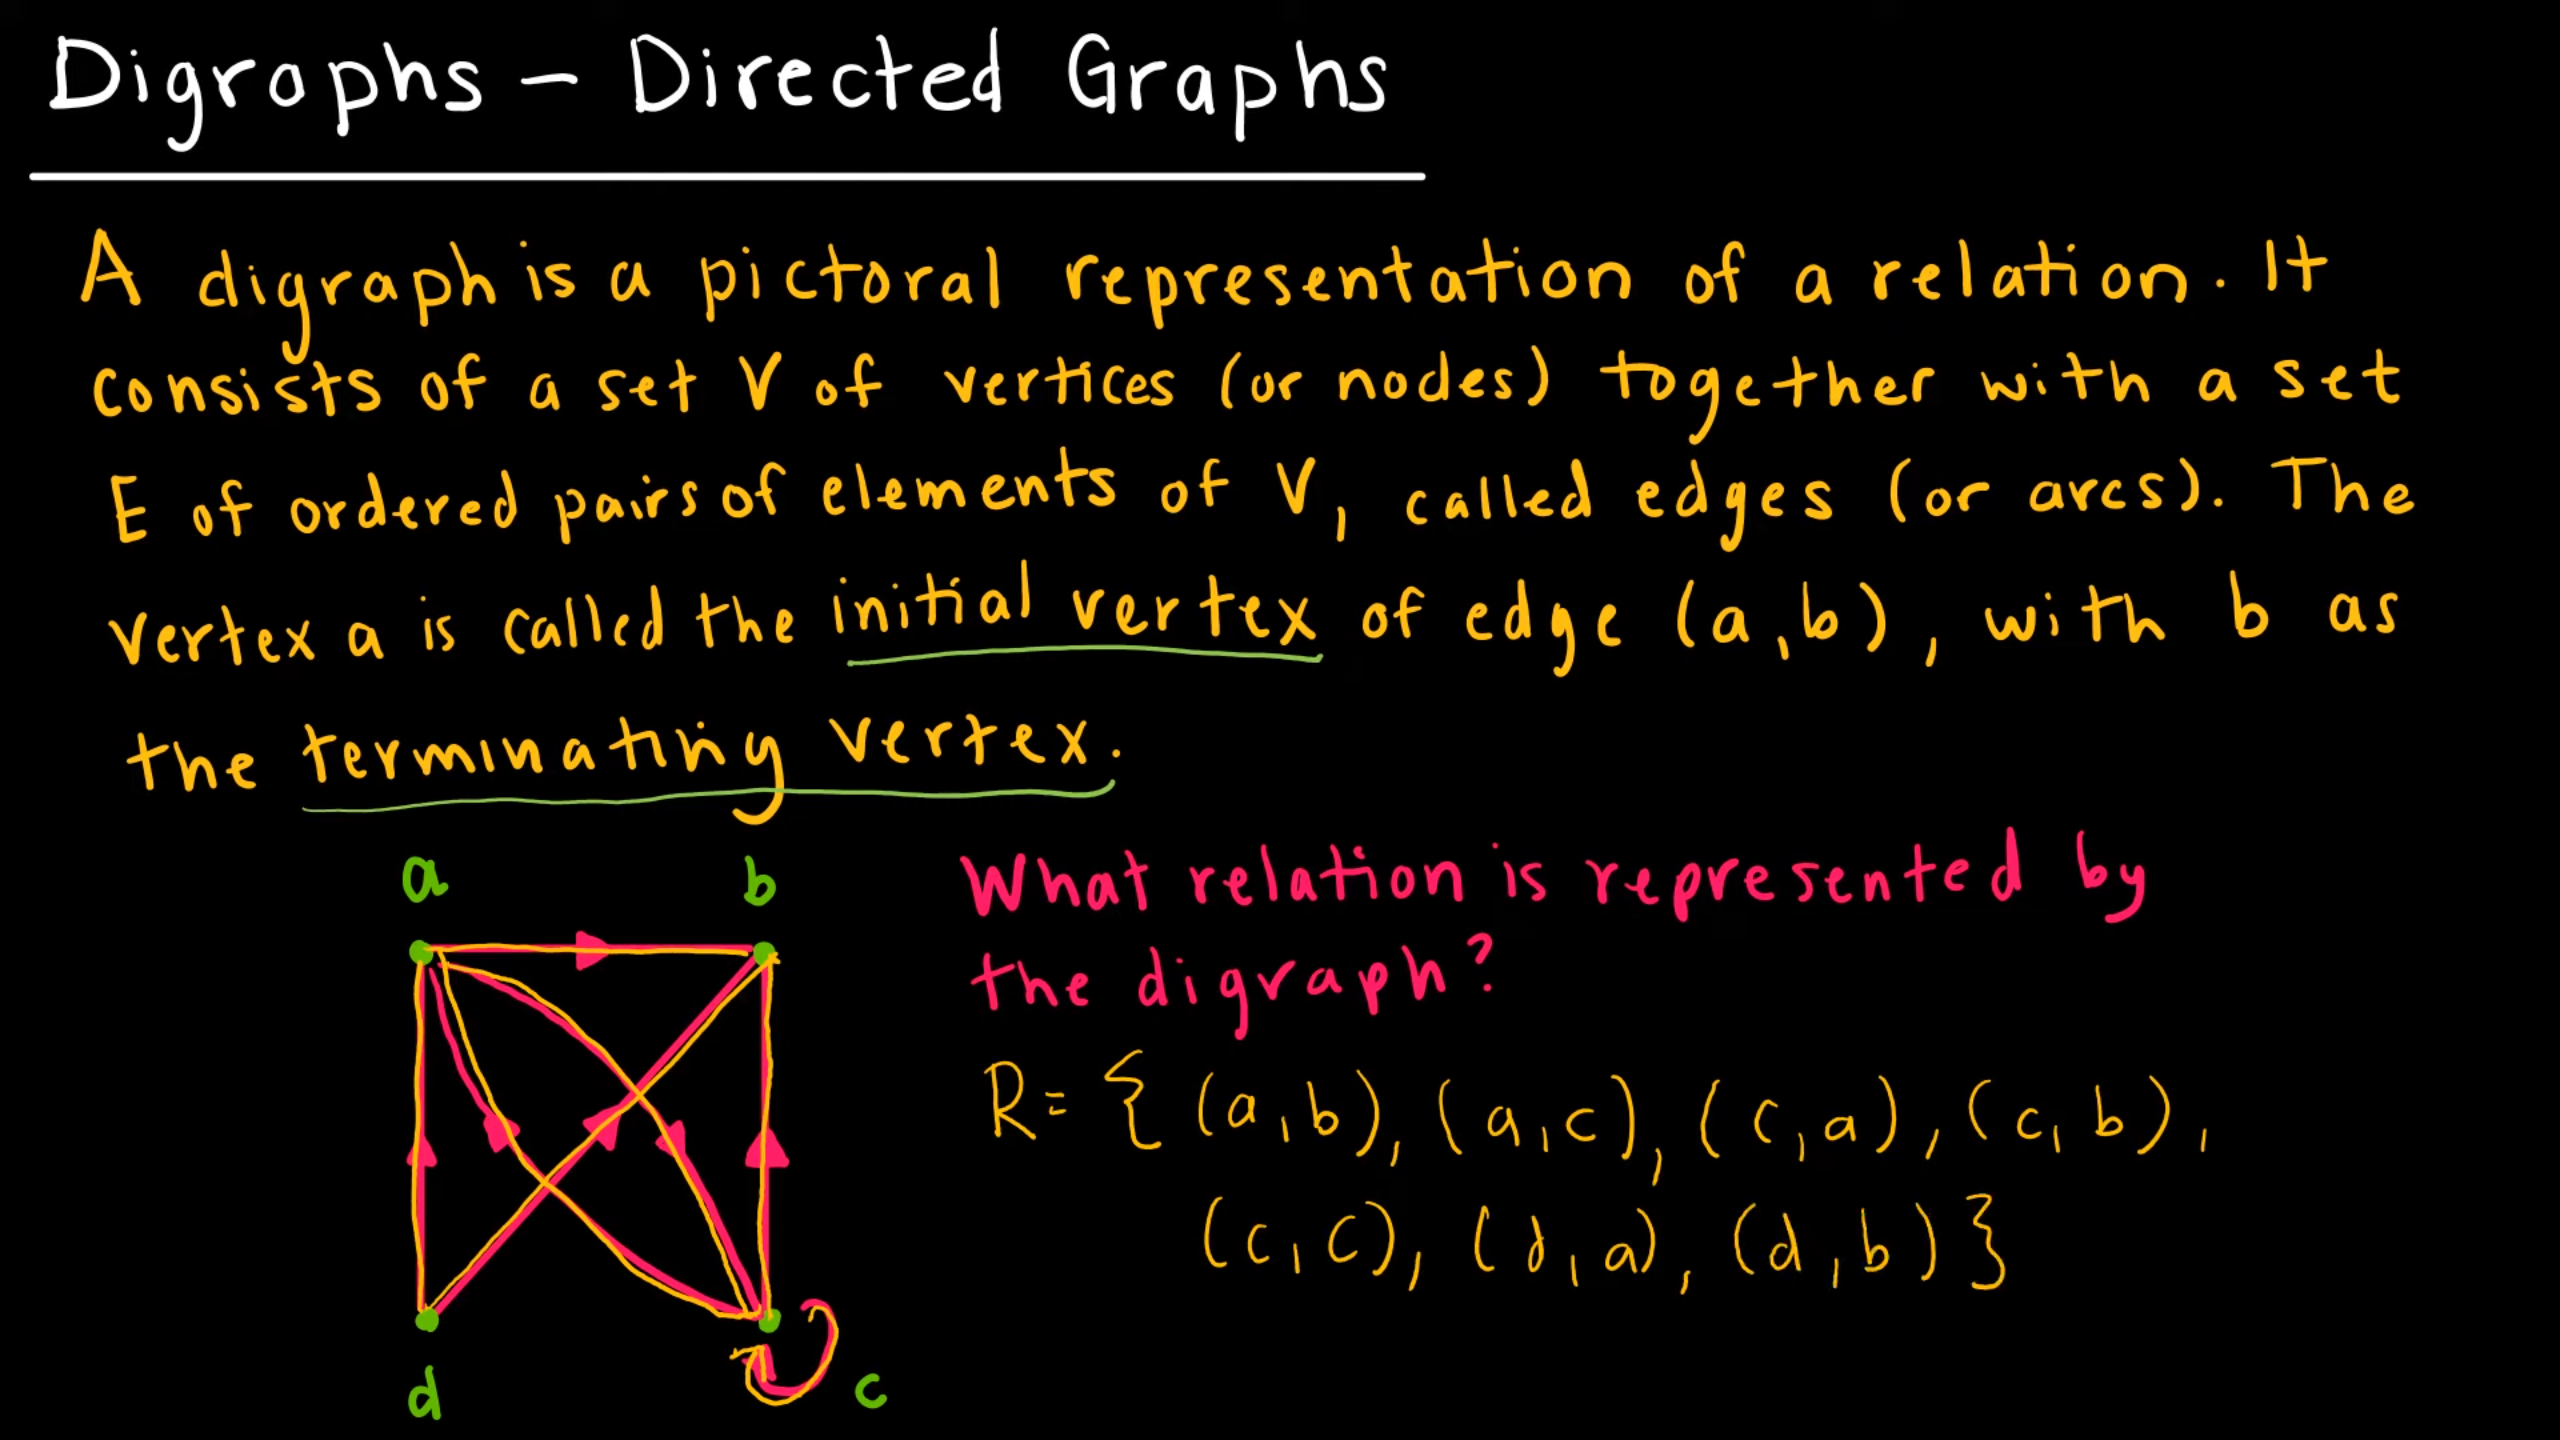 Digraphs - Directed Graphs
A digraph is a pictoral representation of a relation. It
consists of a set V of vertices (or nodes) together with a set
E of ordered pairs of elements of V, called edges (or arcs). The
vertex a is called the initial vertex of edge (a,b), with b as
the terminating vertex.
a b
What relation is represented by
the digraph?
R= { (a,b), (a,c), (c,a), (c,b),
(c,c), (d,a), (d,b) }
d c